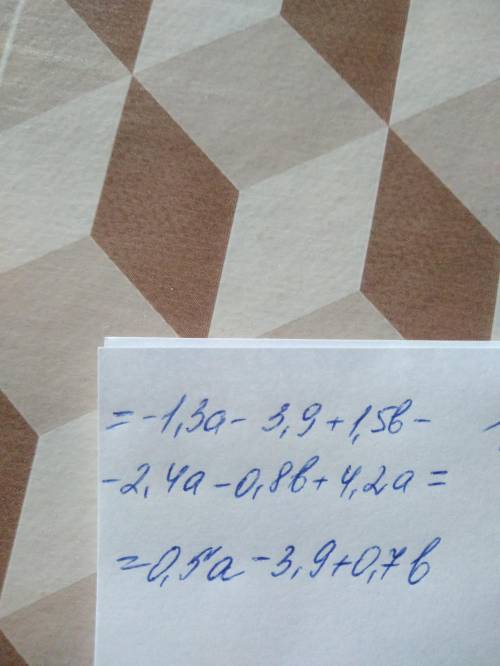 = -1,3a - 3,9 + 1,5b -
- 2,4a - 0,8b + 4,2a =
= 0,5a - 3,9 + 0,7b